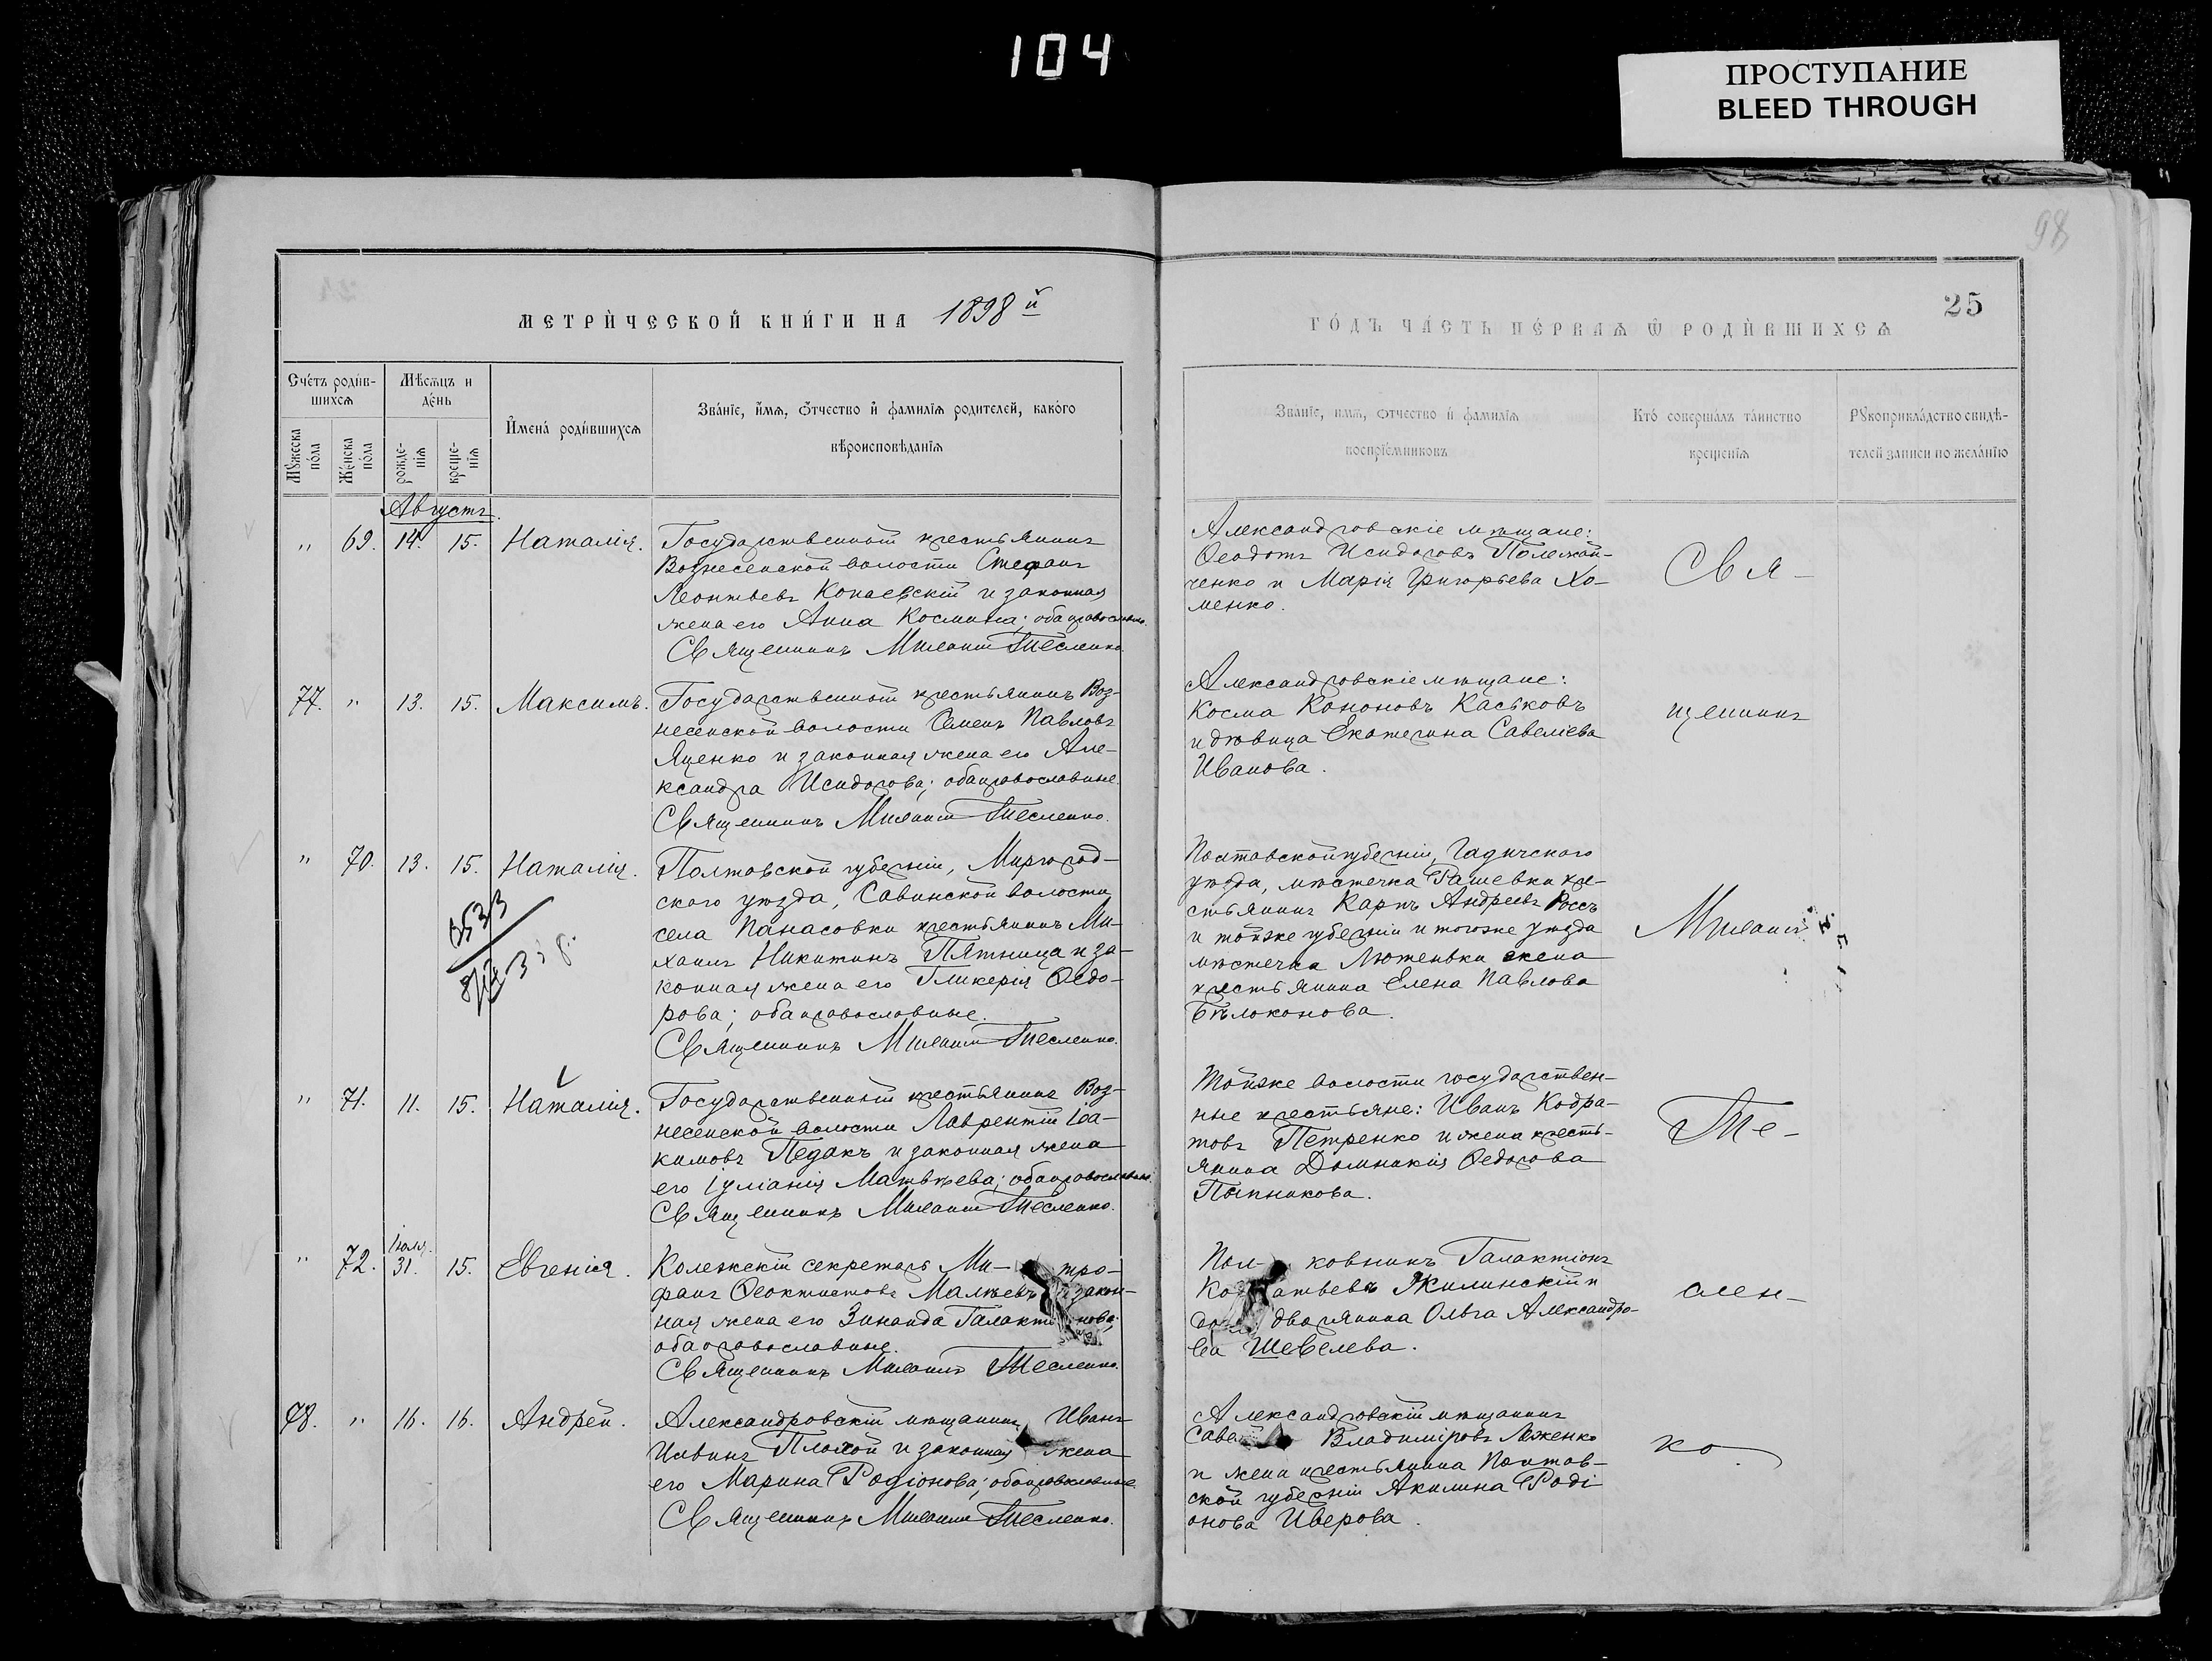 104
ПРОСТУПАНИЕ
BLEED THROUGH
98
25
МЕТРИЧЕСКОЙ КНИГИ НА 1898й
ГОДЪ ЧАСТЬ ПЕРВАЯ Ѿ РОДИВШИХСЯ
Счетъ родив-
шихся
Мужеска
пола
Женска
пола
Мѣсяцъ и
день
рожде-
нія
креще-
нія
Имена родившихся
Званіе, имя, отчество и фамилія родителей, какого
вѣроисповѣданія
Званіе, имя, отчество и фамилія
воспріемниковъ
Кто совершалъ таинство
крещенія
Рукоприкладство свидѣ-
телей записи по желанію
Августъ.
" 69. 14. 15. Наталія.
Государственный крестьянинъ
Вознесенской волости Стефанъ
Леонтьевъ Копаевскій и законная
жена его Анна Космина; оба православн.
Священникъ Михаилъ Тесленко.
Александровскіе мѣщане:
Ѳеодотъ Исидоровъ Полежай-
ченко и Марія Григорьева Хо-
менко.
Свя-
77. " 13. 15. Максимъ.
Государственный крестьянинъ Воз-
несенской волости Семенъ Павловъ
Яценко и законная жена его Але-
ксандра Исидорова; оба православные.
Священникъ Михаилъ Тесленко.
Александровскіе мѣщане:
Косма Кононовъ Каськовъ
и дѣвица Екатерина Савеліева
Иванова.
щенникъ
" 70. 13. 15. Наталія.
3533
Полтавской губерніи, Миргород-
скаго уѣзда, Савинской волости
села Панасовки крестьянинъ Ми-
хаилъ Никитинъ Пятница и за-
конная жена его Гликерія Ѳедо-
рова; оба православные.
Священникъ Михаилъ Тесленко.
Полтавской губерніи, Гадячскаго
уѣзда, мѣстечка Рашевки кре-
стьянинъ Карпъ Андреевъ Россъ
и тойже губерніи и тогоже уѣзда
мѣстечка Лютеньки жена
крестьянина Елена Павлова
Бѣлоконова.
Михаилъ
" 71. 11. 15. Наталія.
Государственный крестьянинъ Воз-
несенской волости Лаврентій Іоа-
кимовъ Педакъ и законная жена
его Іуліанія Матвѣева; оба православные.
Священникъ Михаилъ Тесленко.
Тойже волости государствен-
ные крестьяне: Иванъ Кодра-
товъ Петренко и жена кресть-
янина Домникія Ѳедорова
Те-
" 72. Іюля. 31. 15. Евгенія.
Колежскій секретарь Ми- тро-
фанъ Ѳеоктистовъ Малѣевъ и закон-
ная жена его Зинаида Галакті нова;
оба православные.
Священникъ Михаилъ Тесленко.
Пол- ковникъ Галактіонъ
Ко атьевъ Жилинскій и
до дворянина Ольга Александро-
ва Шевелева.
слен-
78. " 16. 16. Андрей.
Александровскій мѣщанинъ Иванъ
Иавинъ Плохой и законная жена
его Марина Родіонова; оба православные.
Священникъ Михаилъ Тесленко.
Александровскій мѣщанинъ
Саве Владиміровъ Леженко
и жена крестьянина Полтав-
ской губерніи Акилина Роді
онова Иверова.
ко